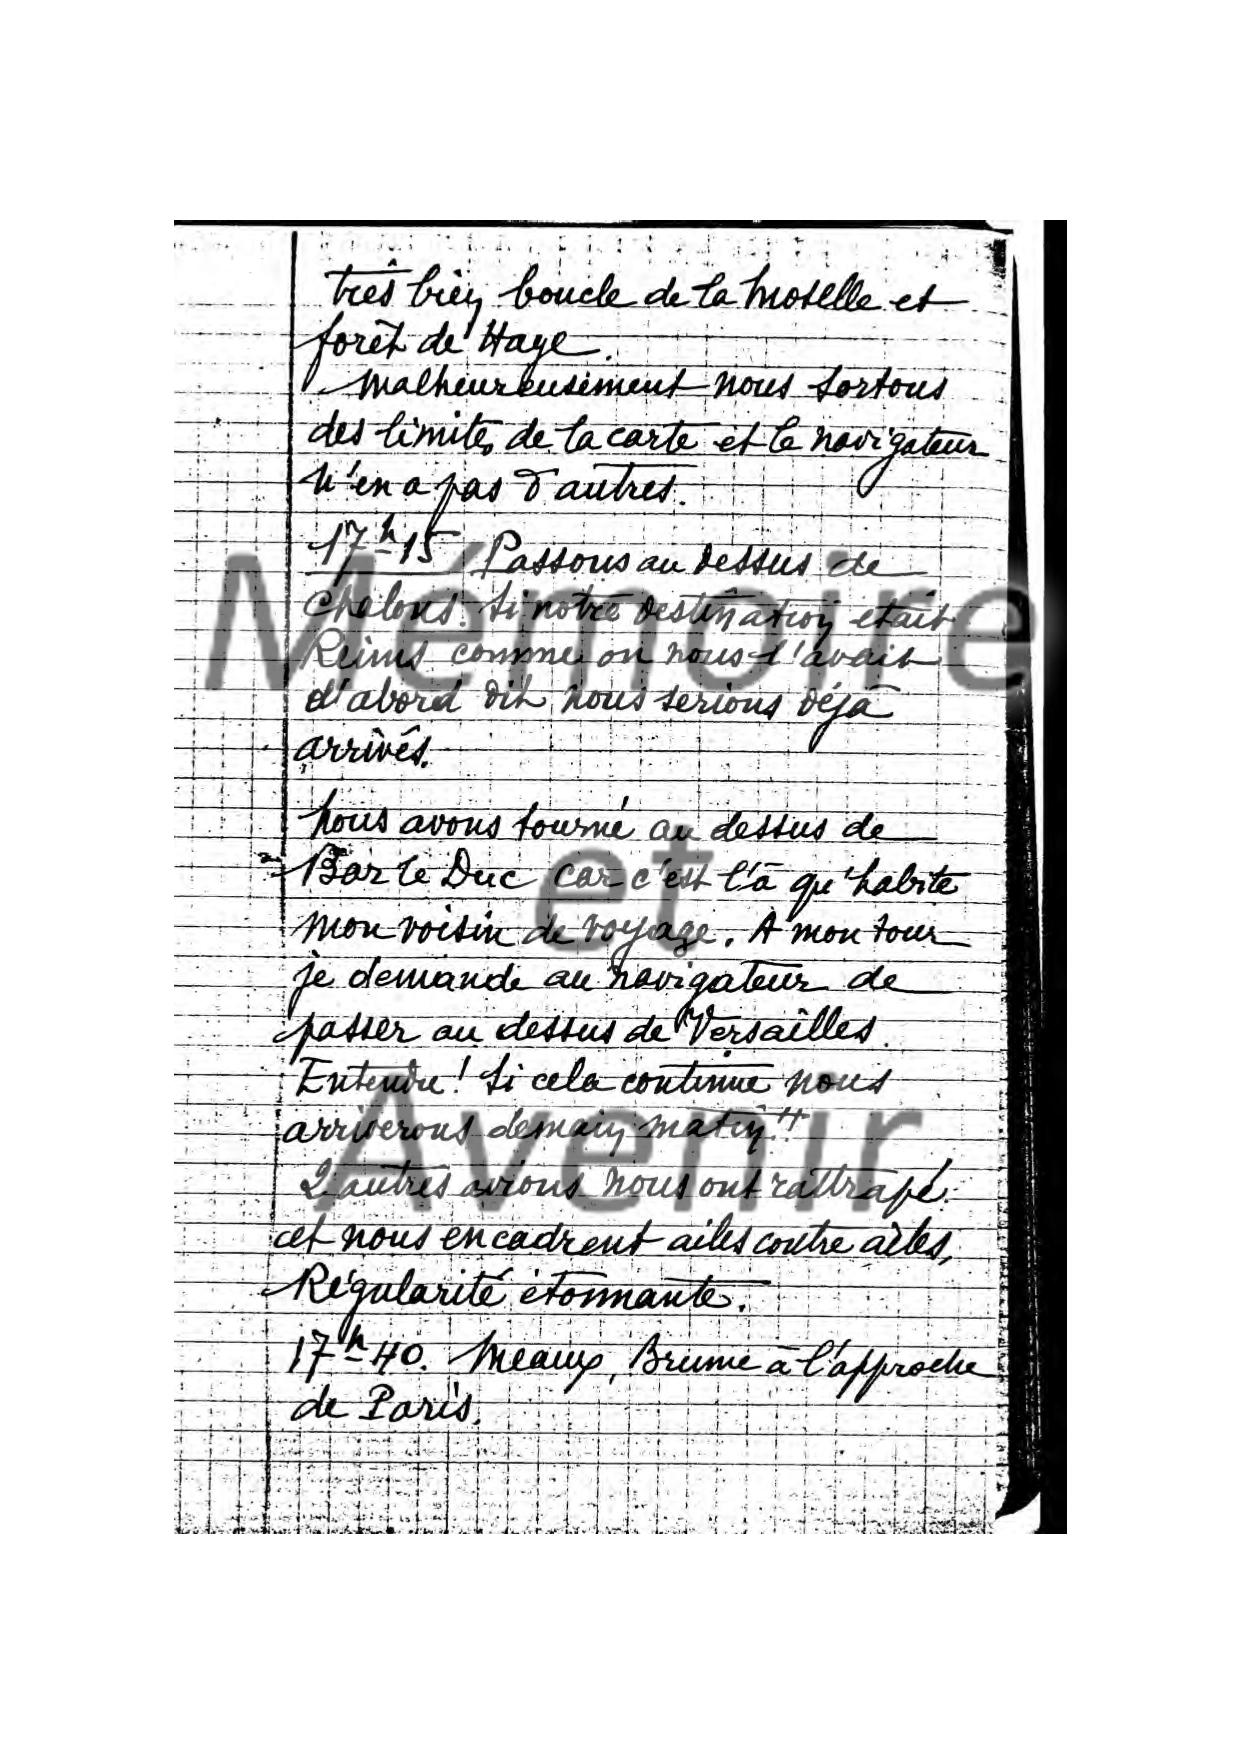 très bien boucle de la Moselle et
forêt de Haye.
Malheureusement nous sortons
des limites de la carte et le navigateur
n'en a pas d'autres.
17h15 Passons au dessus de
Chalons. Si notre destination etait
Reims comme on nous l'avait
d'abord dit, nous serions déjà
arrivés.
Nous avons tourné au dessus de
Bar le Duc car c'est là qu'habite
mon voisin de voyage. A mon tour
je demande au navigateur de
passer au dessus de Versailles.
Entendu! Si cela continue nous
arriverons demain matin!!
2 autres avions nous ont rattrapé
et nous encadrent ailes contre ailes,
Régularité étonnante.
17h40. Meaux, Brume à l'approche
de Paris.
Mémoire
et
Avenir